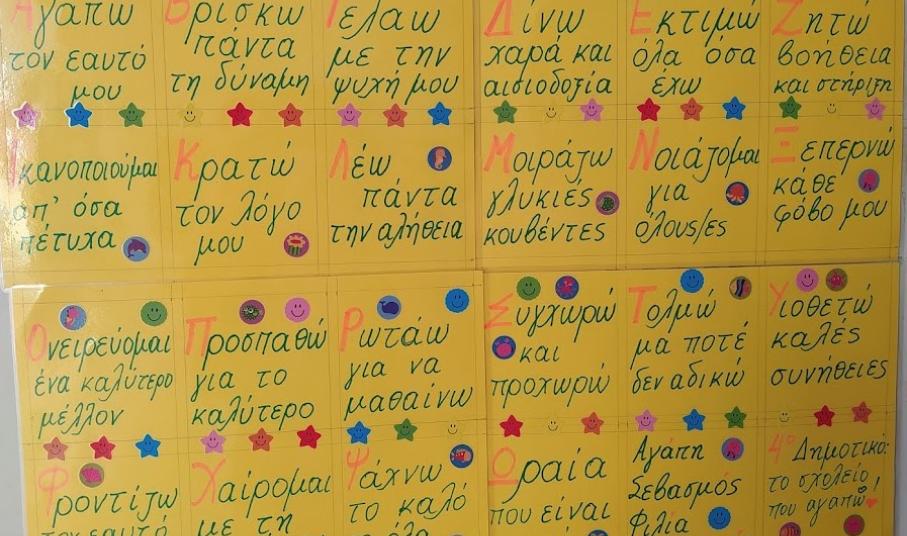 Αγαπώ
τον εαυτό
μου
Βρίσκω
πάντα
τη δύναμη
Γελάω
με την
ψυχή μου
Δίνω
χαρά και
αισιοδοξία
Εκτιμώ
όλα όσα
έχω
Ζητώ
βοήθεια
και στήριξη
Ικανοποιούμαι
απ' όσα
πέτυχα
Κρατώ
τον λόγο
μου
Λέω
πάντα
την αλήθεια
Μοιράζω
γλυκιές
κουβέντες
Νοιάζομαι
για
όλους/ες
Ξεπερνώ
κάθε
φόβο μου
Ονειρεύομαι
ένα καλύτερο
μέλλον
Προσπαθώ
για το
καλύτερο
Ρωτάω
για να
μαθαίνω
Συγχωρώ
και
προχωρώ
Τολμώ
μα ποτέ
δεν αδικώ
Υιοθετώ
καλές
συνήθειες
Φροντίζω
τον εαυτό
Χαίρομαι
με τη
Ψάχνω
το καλό
Ωραία
που είναι
Αγάπη
Σεβασμός
Φιλία
4ο Δημοτικό:
το σχολείο
που αγαπώ!